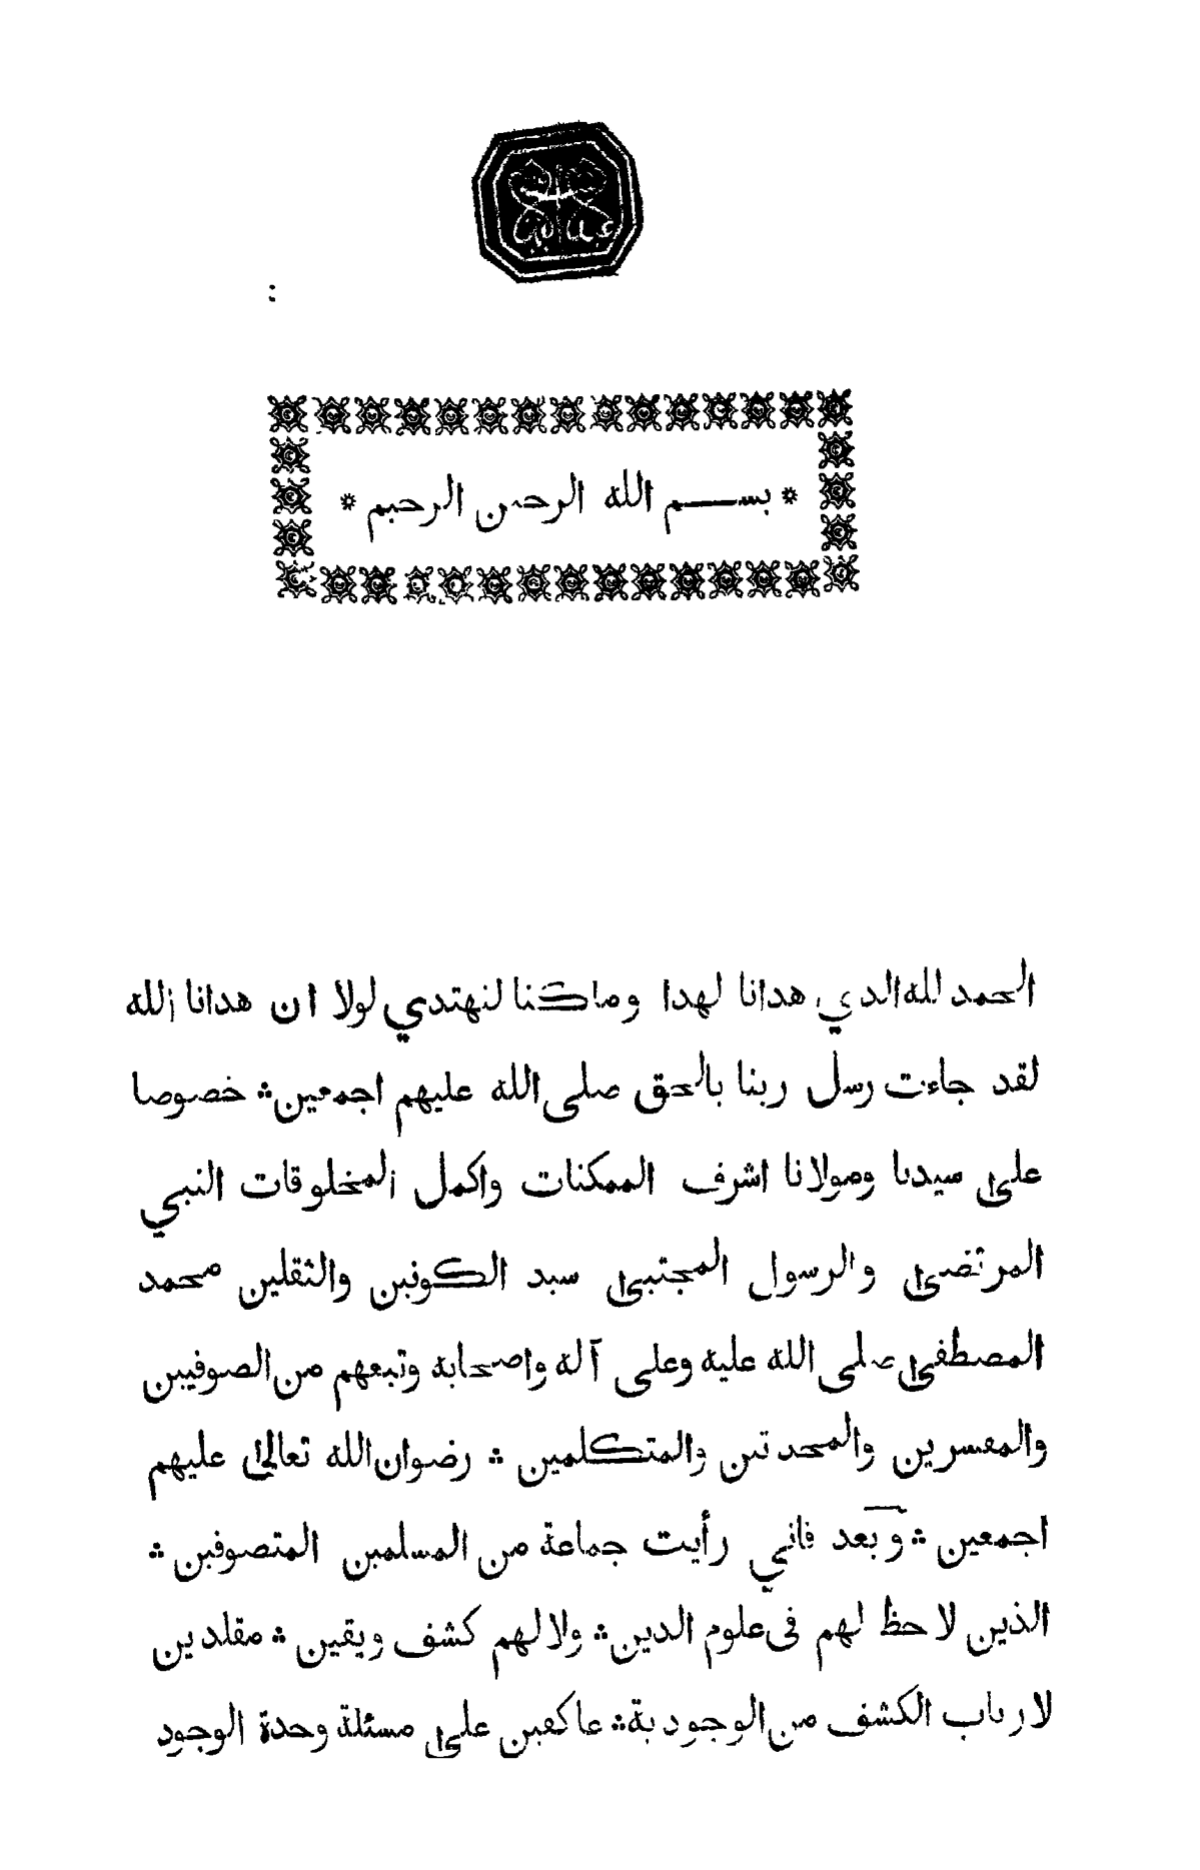 * بســـم الله الرحمن الرحيم *
الحمد لله الذي هدانا لهذا وماكنا لنهتدي لولا ان هدانا الله
لقد جاءت رسل ربنا بالحق صلى الله عليهم اجمعين ۞ خصوصا
على سيدنا ومولانا اشرف الممكنات واكمل المخلوقات النبي
المرتضى والرسول المجتبى سيد الكونين والثقلين محمد
المصطفى صلى الله عليه وعلى آله واصحابه وتبعهم من الصوفيين
والمفسرين والمحدثين والمتكلمين ۞ رضوان الله تعالى عليهم
اجمعين ۞ وبعد فاني رأيت جماعة من المسلمين المتصوفين ۞
الذين لا حظ لهم فى علوم الدين ۞ ولا لهم كشف ويقين ۞ مقلدين
لارباب الكشف من الوجودية ۞ عاكفين على مسئلة وحدة الوجود